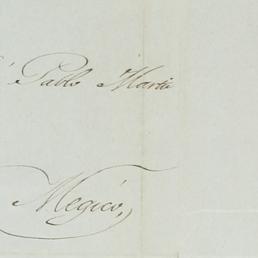 Pablo Martin
Megico,